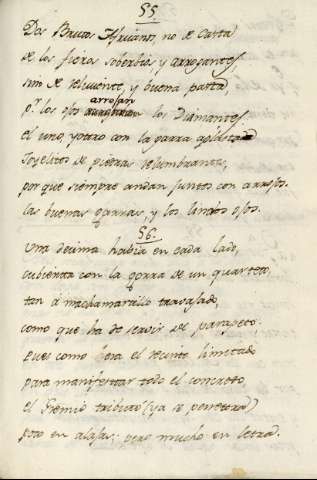 55.
Dos Brutos Africanos, no de Casta
de los fieros soberbios, y arrogantes,
sino de reluciente, y buena pasta,
pr. los ojos arrojan los Diamantes,
el uno, y otro con la garra
Joyelitos de piedras relumbrantes,
porque siempre andan juntos con arrojos
las buenas garras, y los lindos ojos.
56.
Una decima habia en cada lado,
cubierta con la gorra de un quarteto,
tan á machamartillo trabajado,
como que ha de servir de parapeto.
Pues como era el recinto limitado
para manifestar todo el concreto,
el Gremio tributó (ya se penetra)
poco en alajas; pero mucho en letra.